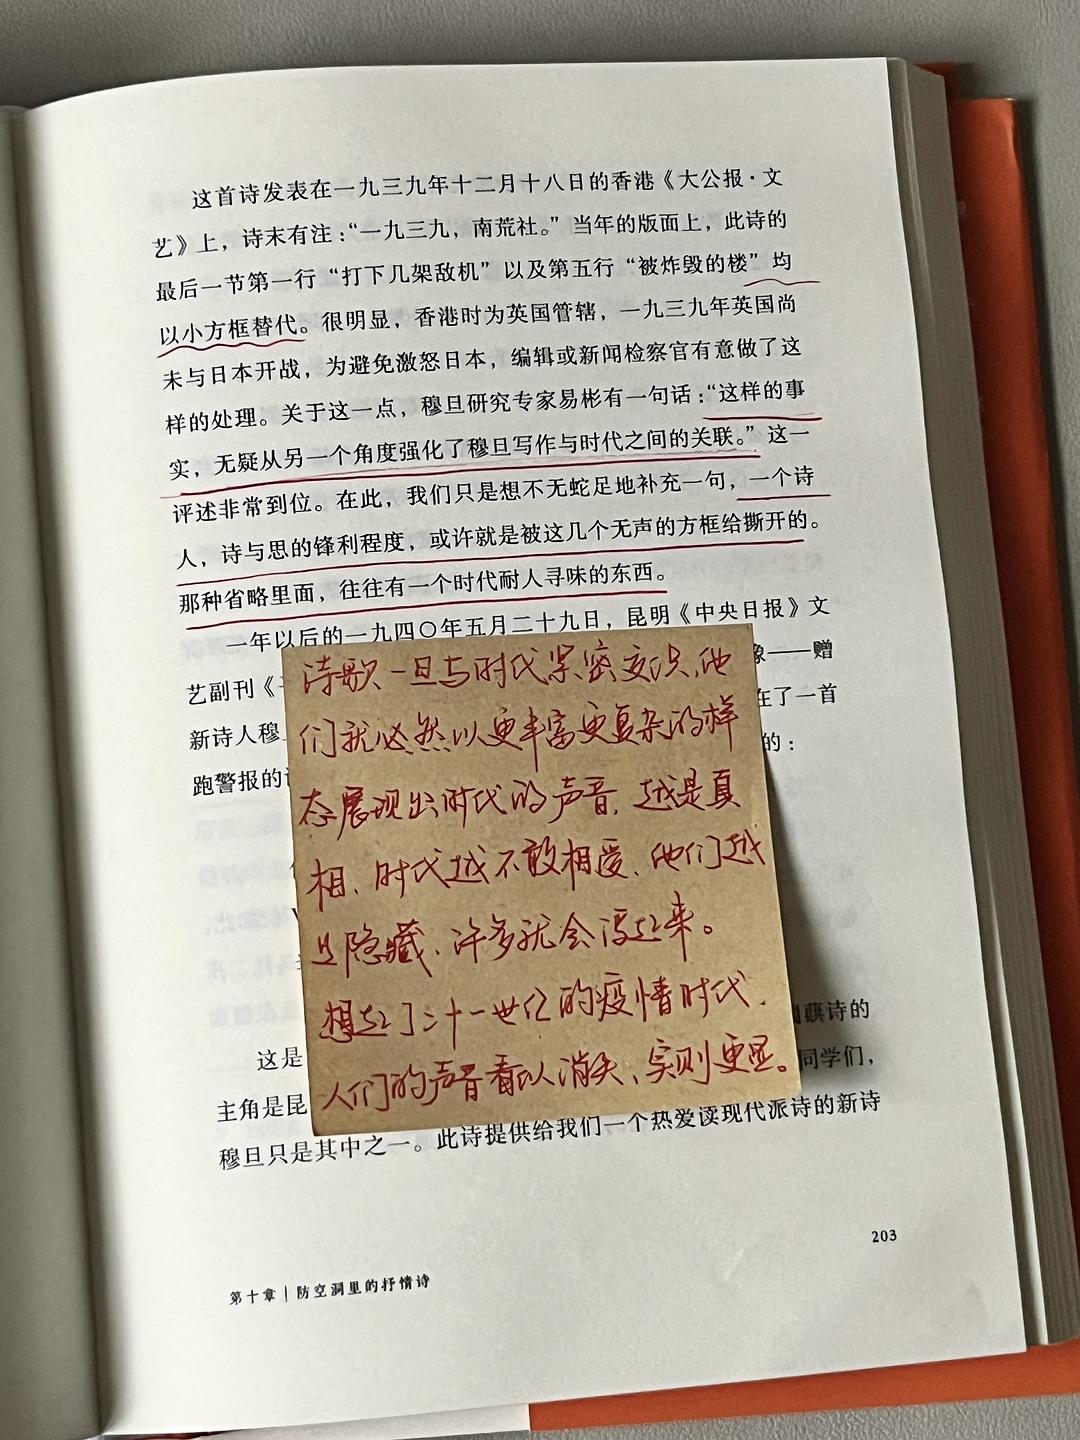 这首诗发表在一九三九年十二月十八日的香港《大公报·文
艺》上，诗末有注：“一九三九，南荒社。”当年的版面上，此诗的
最后一节第一行“打下几架敌机”以及第五行“被炸毁的楼”均
以小方框替代。很明显，香港时为英国管辖，一九三九年英国尚
未与日本开战，为避免激怒日本，编辑或新闻检察官有意做了这
样的处理。关于这一点，穆旦研究专家易彬有一句话：“这样的事
实，无疑从另一个角度强化了穆旦写作与时代之间的关联。”这一
评述非常到位。在此，我们只是想不无蛇足地补充一句，一个诗
人，诗与思的锋利程度，或许就是被这几个无声的方框给撕开的。
那种省略里面，往往有一个时代耐人寻味的东西。
一年以后的一九四〇年五月二十九日，昆明《中央日报》文
艺副刊《 像——赠
新诗人穆 在了一首
跑警报的 的：
诗歌一旦与时代紧密交织，他
们就必然以更丰富更复杂的样
态展现出时代的声音，越是真
相，时代越不敢相爱，他们越
是隐藏，许多就会浮起来。
想起了二十一世纪的疫情时代，
人们的声音看以消失，实则更显。
这是 诗的
主角是昆 同学们，
穆旦只是其中之一。此诗提供给我们一个热爱读现代派诗的新诗
203
第十章｜防空洞里的抒情诗